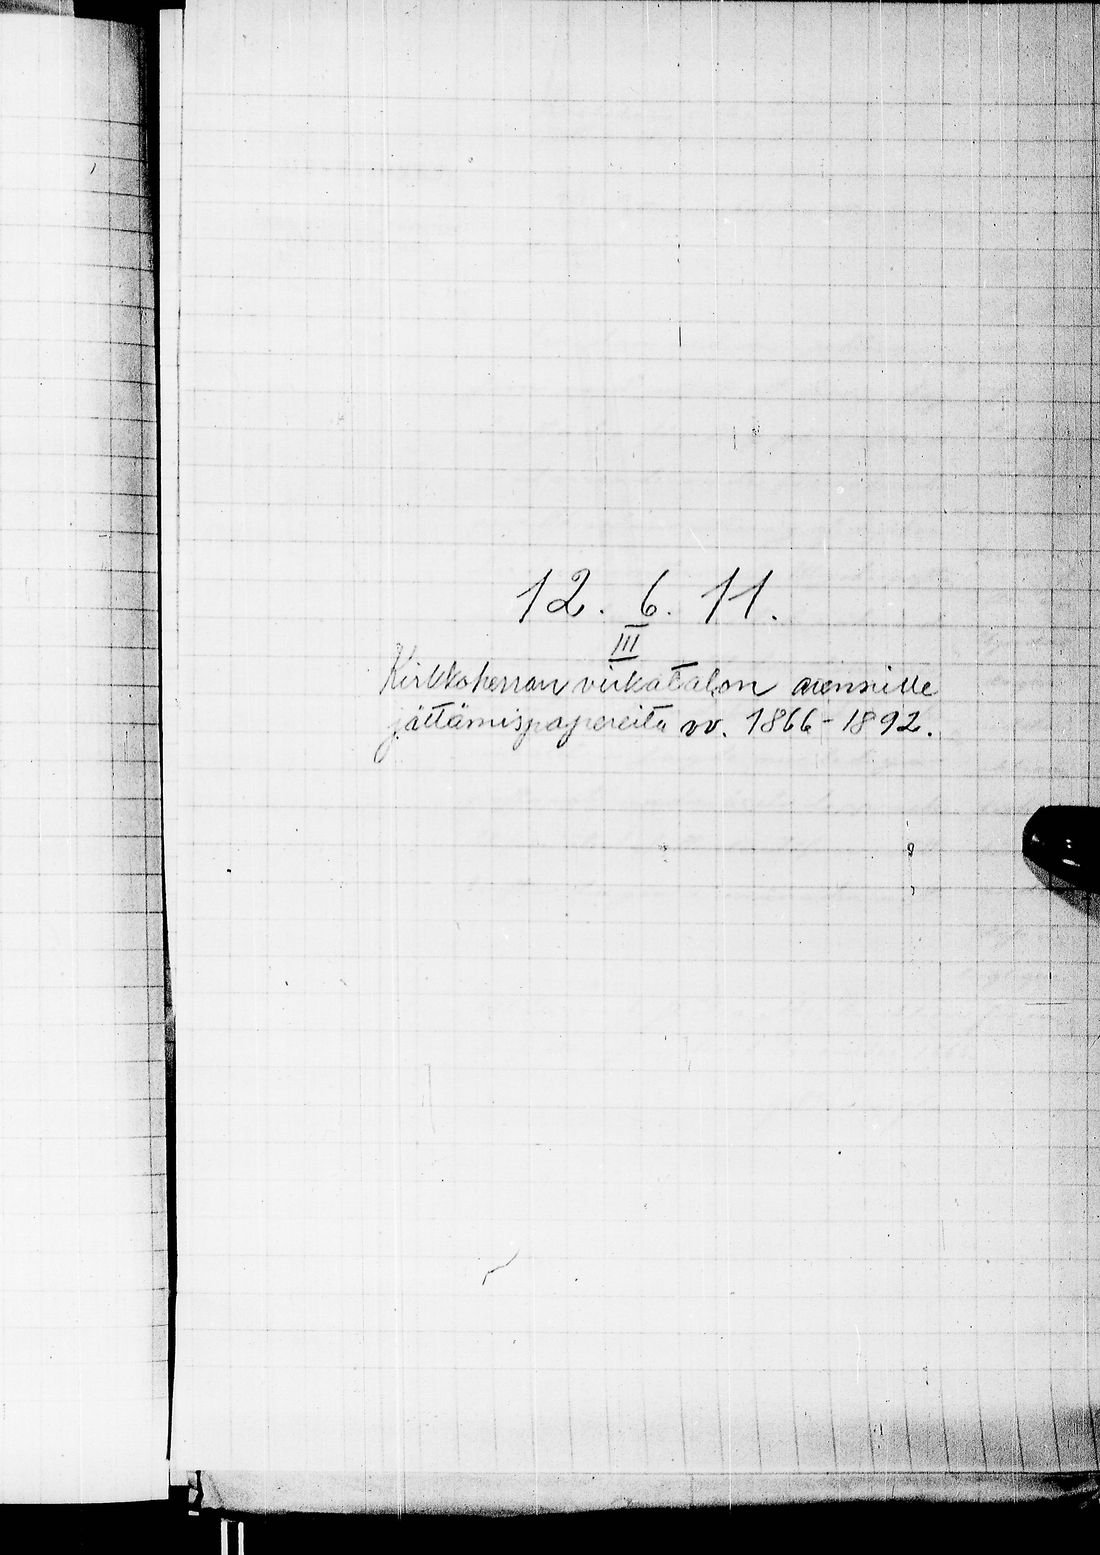 12. 6. 11.
III
Kirkkoherran virkatalon arennille
jättämispapereita vv. 1866-1892.